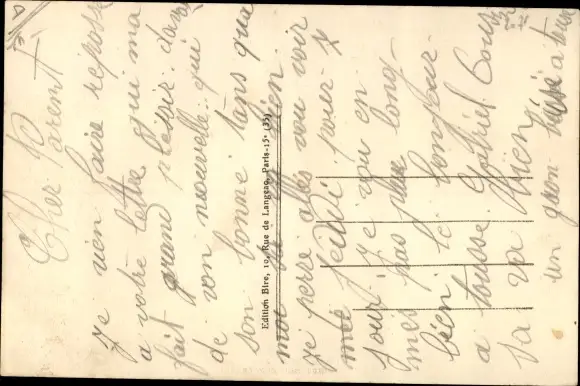 Cher Parent
Je vien faire reposse
a votre lettre qui ma
fait grand plesir davoir
de von nouvelle qui
son bonne tans qua
moi sa va bien.
je perre allé vou voir
jeudi pour x
jour. Je vou en
met pas plus long
bien le bonjour
a tousse Gabriel
sa va bien
un gron a tous
Edition Bire, 10, Rue de Langeac, Paris-15e (35)